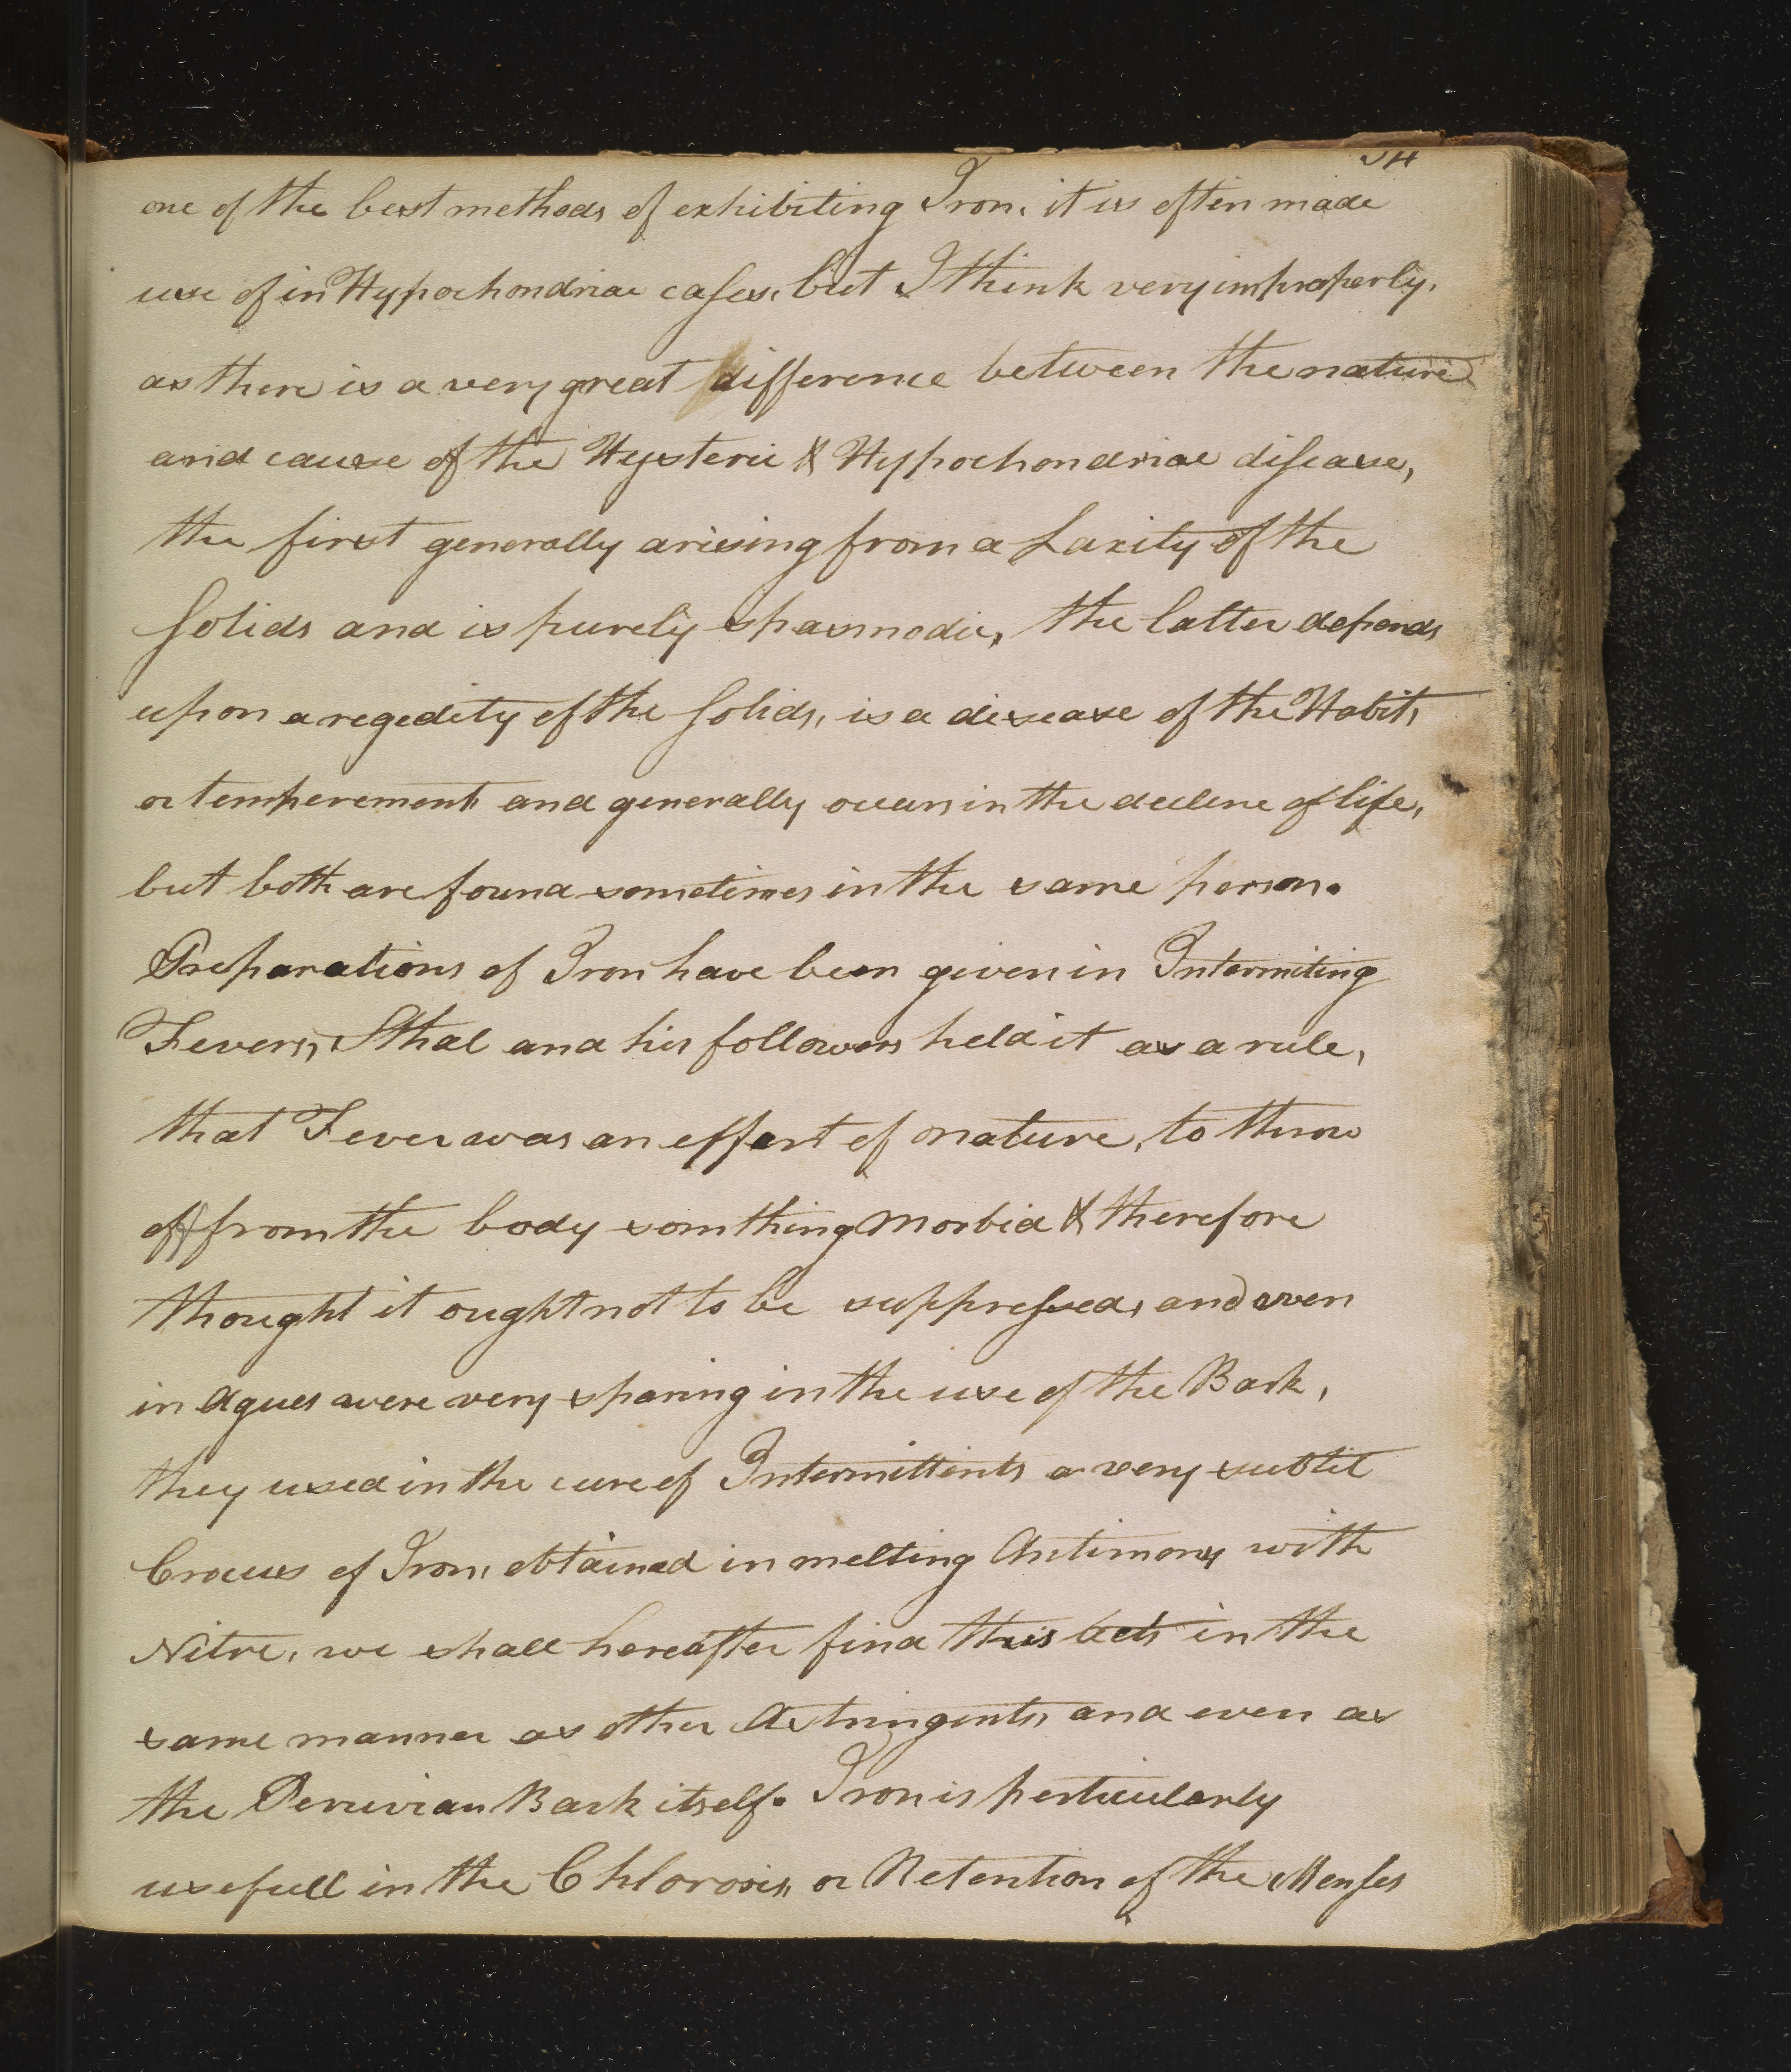 one of the best methods of exhibiting Iron, it is often made
use of in Hypochondriac cases, but I think very improperly,
as there is a very great difference between the nature
and cause of the Hysteric & Hypochondriac disease,
the first generally arising from a Laxity of the
Solids and is purely spasmodic, the latter depends
upon a regedity of the Solids, is a disease of the Habit,
or temperement and generally occurs in the decline of life,
but both are found sometimes in the same person.
Preparations of Iron have been given in Intermiting
Fevers, Sthal and his followers held it as a rule,
that Fever was an effort of nature, to throw
off from the body somthing Morbid & therefore
thought it ought not to be suppressed, and even
in Agues were very sparing in the use of the Bark,
they used in the cure of Intermittents a very subtil
Crocus of Iron, obtained in melting Antimony with
Nitre, we shall hereafter find this acts in the
same manner as other Astringents, and even as
the Peruvian Bark itself. Iron is perticularly
usefull in the Chlorosis, or Retention of the Menses